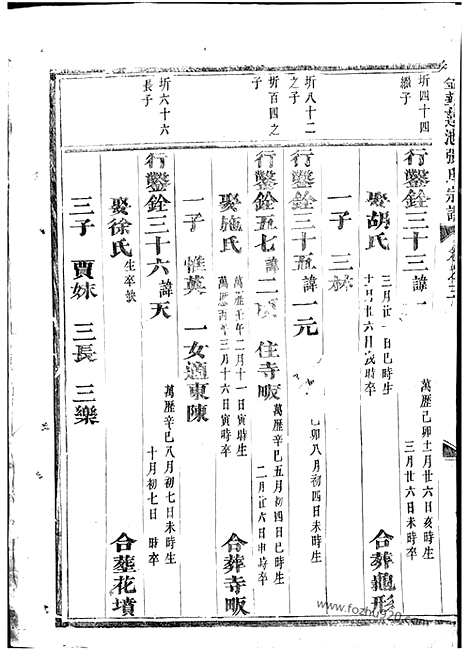 蓮池張氏宗譜
圻四十四
繼子
行鑿銓三十三諱
萬歷己卯十一月廿六日亥時生
三月廿六日未時卒
娶胡氏
三月廿一日巳時生
十月廿六日戌時卒
合葬龜形
一子 三林
圻八十二
之子
行鑿銓三十五諱一元
己卯八月初四日未時生
圻百四之
子
行鑿銓五七諱二 住寺畈
萬歷辛巳五月初四日巳時生
二月廿六日申時卒
娶施氏
萬歷壬午二月十一日寅時生
三月十六日寅時卒
合葬寺畈
一子 惟英 一女適東陳
圻六十六
長子
行鑿銓三十六諱天
萬歷辛巳八月初七日未時生
十月初七日 時卒
娶徐氏生卒缺
合葬花墳
三子 賈妹 三長 三樂
www.fozhu920.com